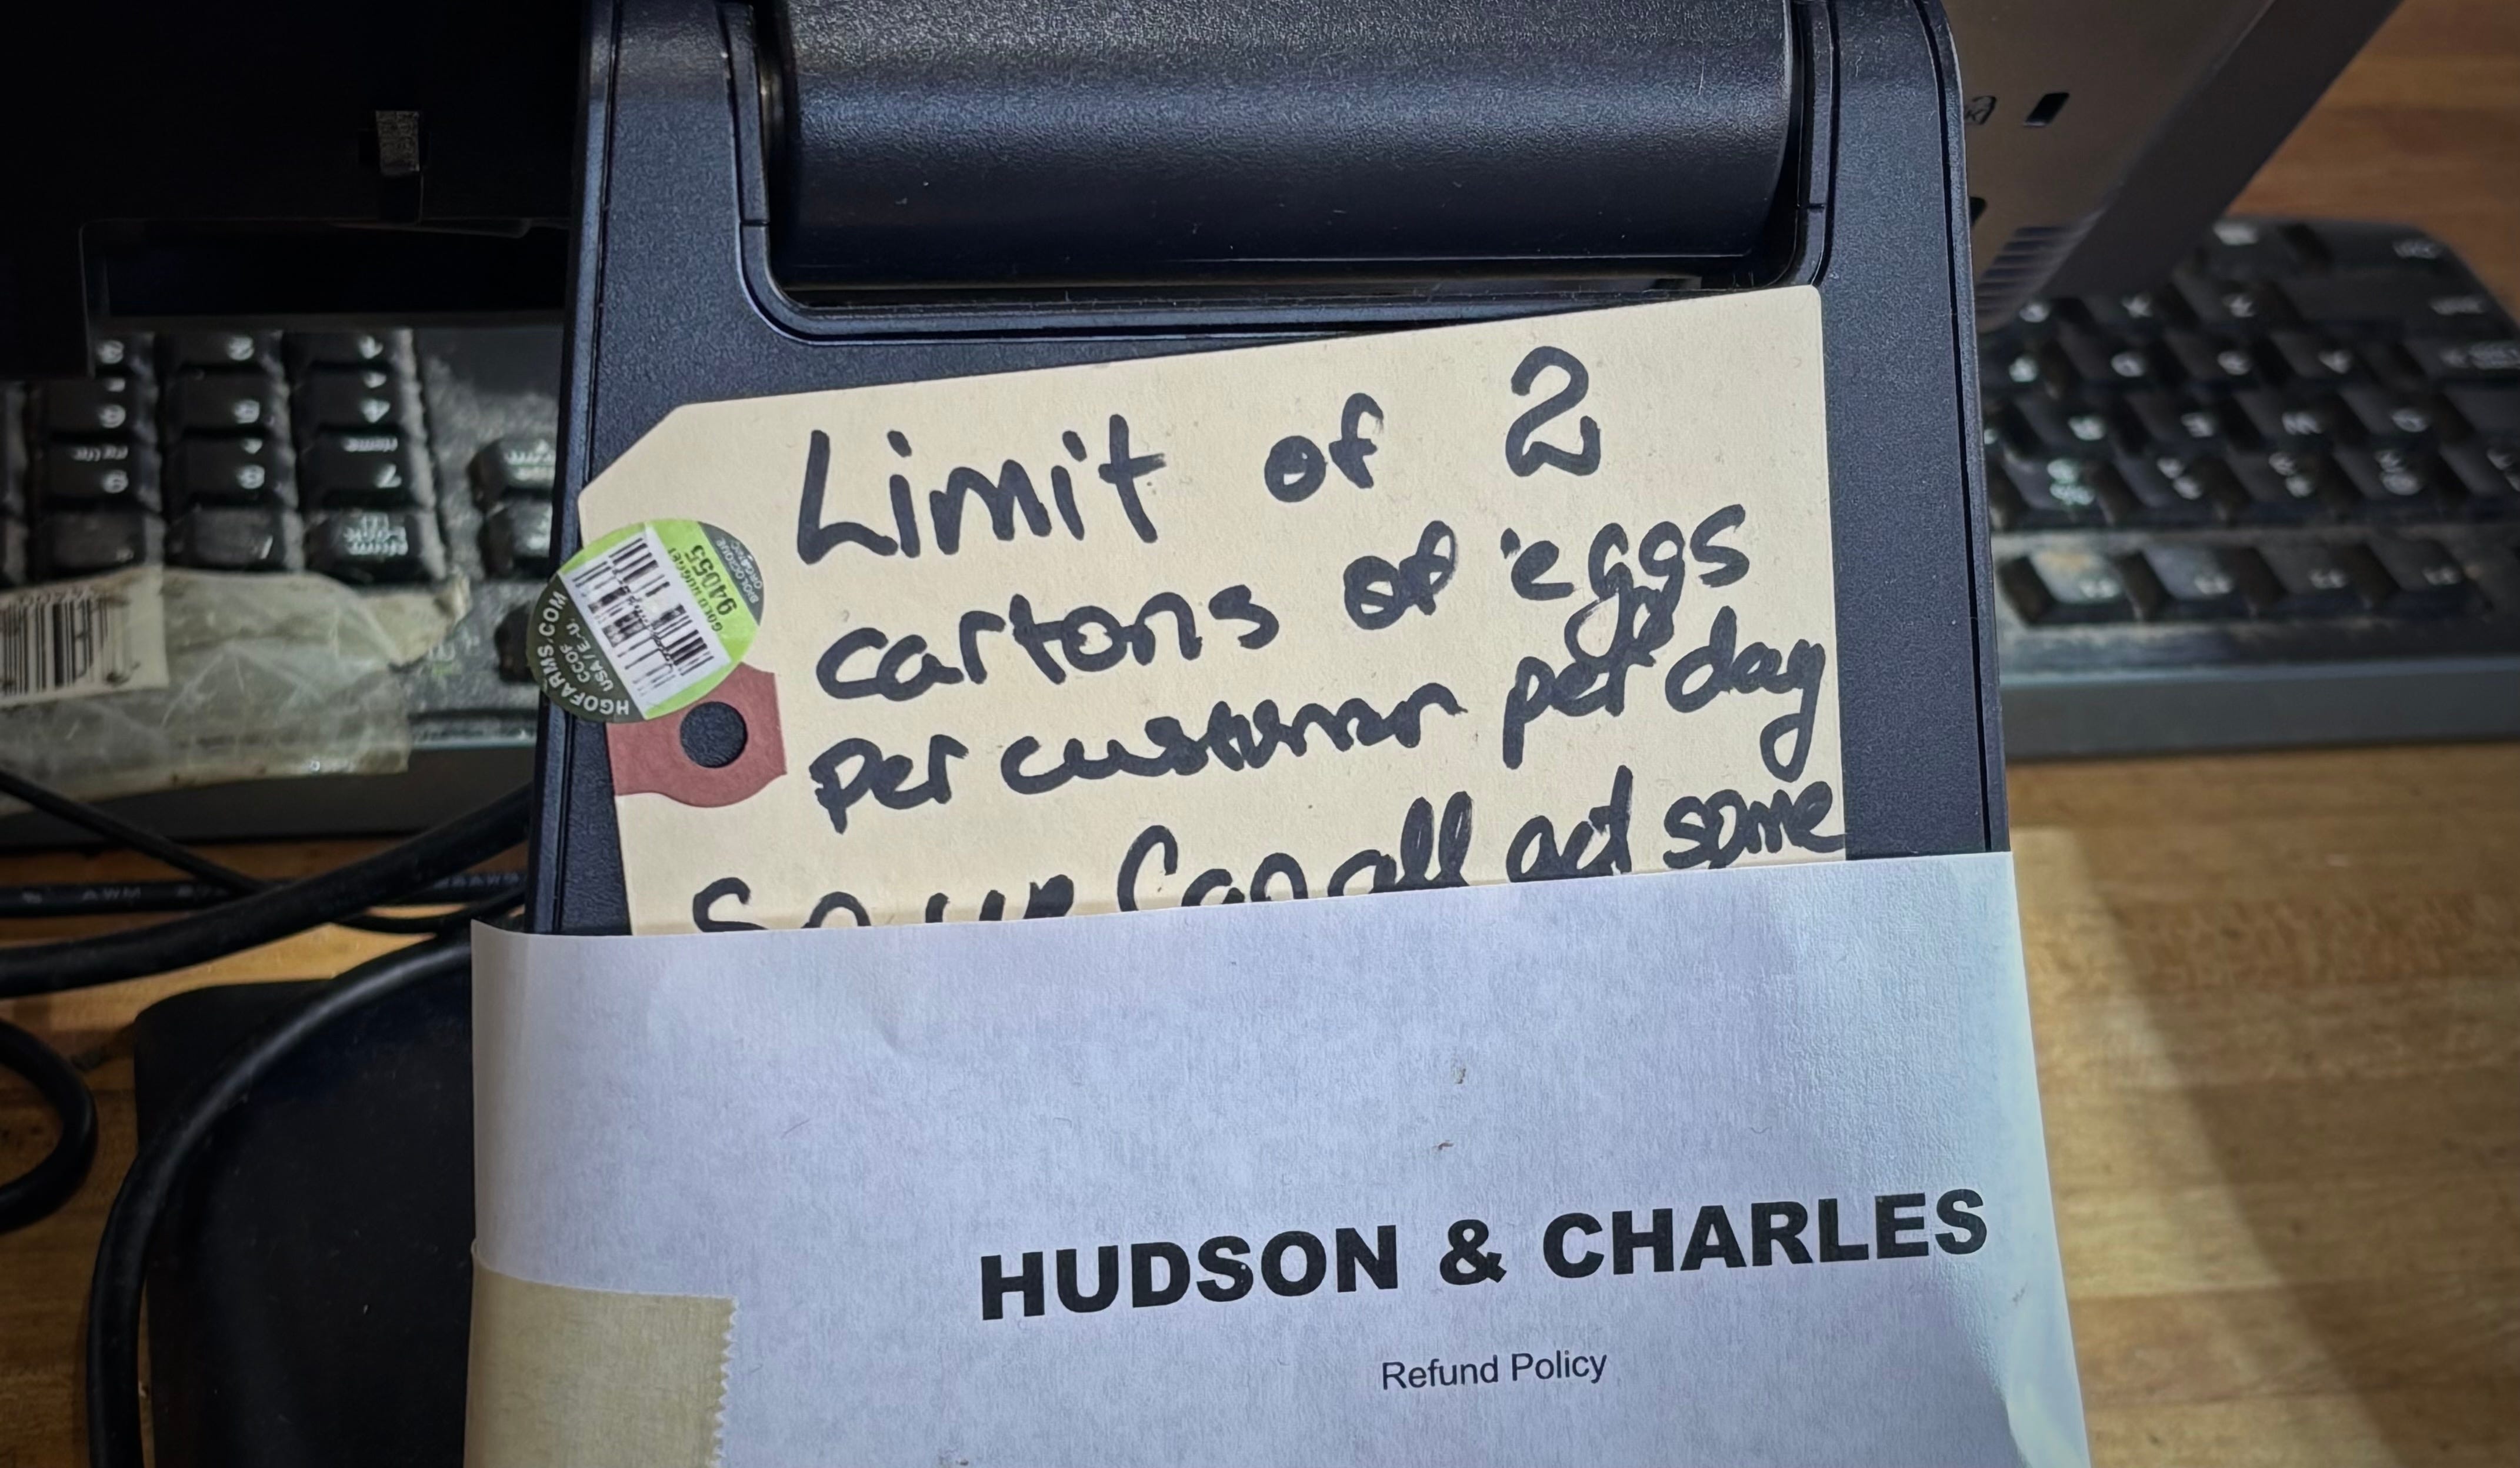 Limit of 2
cartons of eggs
per customer per day
So we can all get some
HGOFARMS.COM
CCOF
USA / E.-U.
GOLD NUGGET
94055
BIOLOGIQUE
ORGANIC
HUDSON & CHARLES
Refund Policy
AWM
7